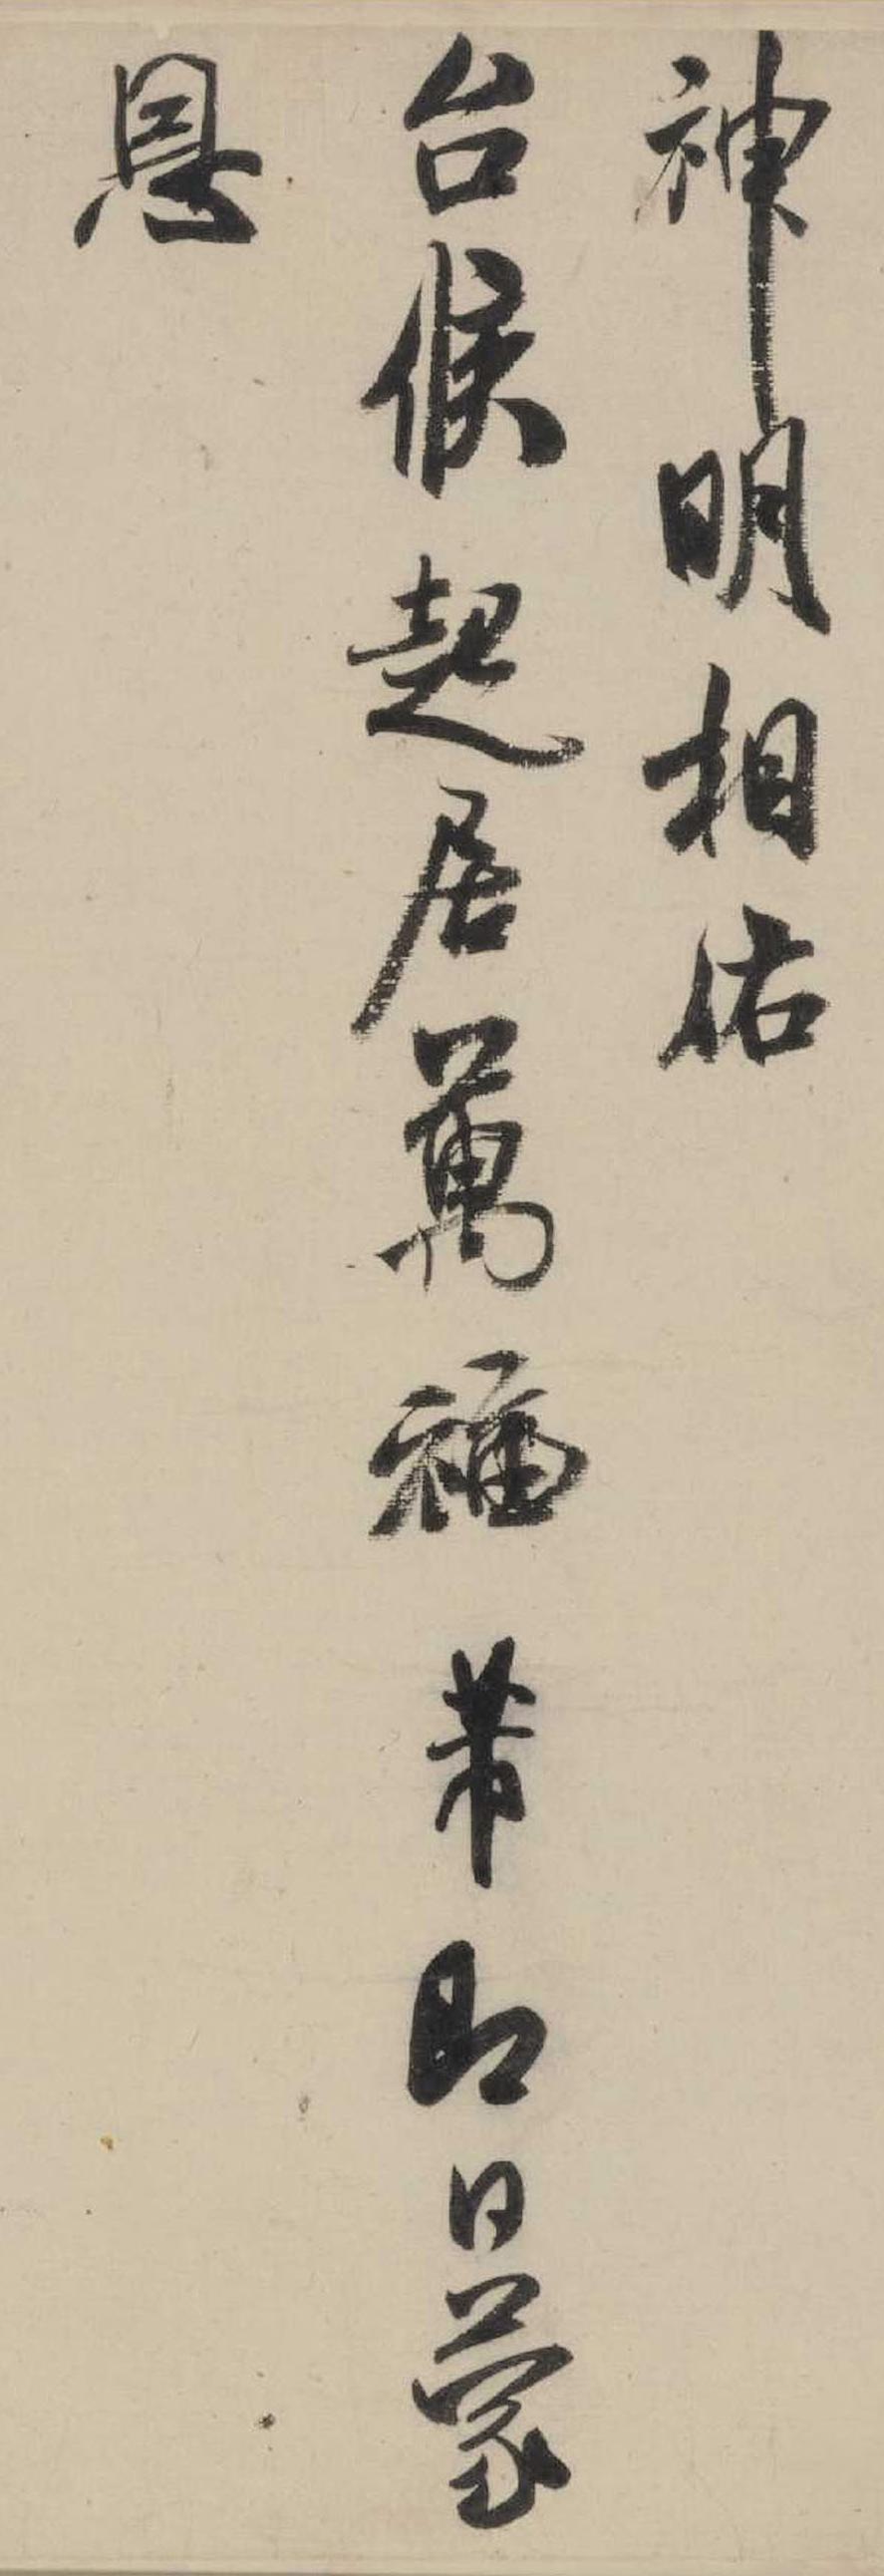 神明相佑
台候起居萬福芾即日蒙
恩